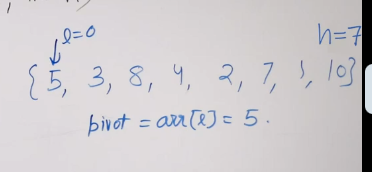 l=0
h=7
{5, 3, 8, 4, 2, 7, 1, 10}
pivot = arr[l] = 5.